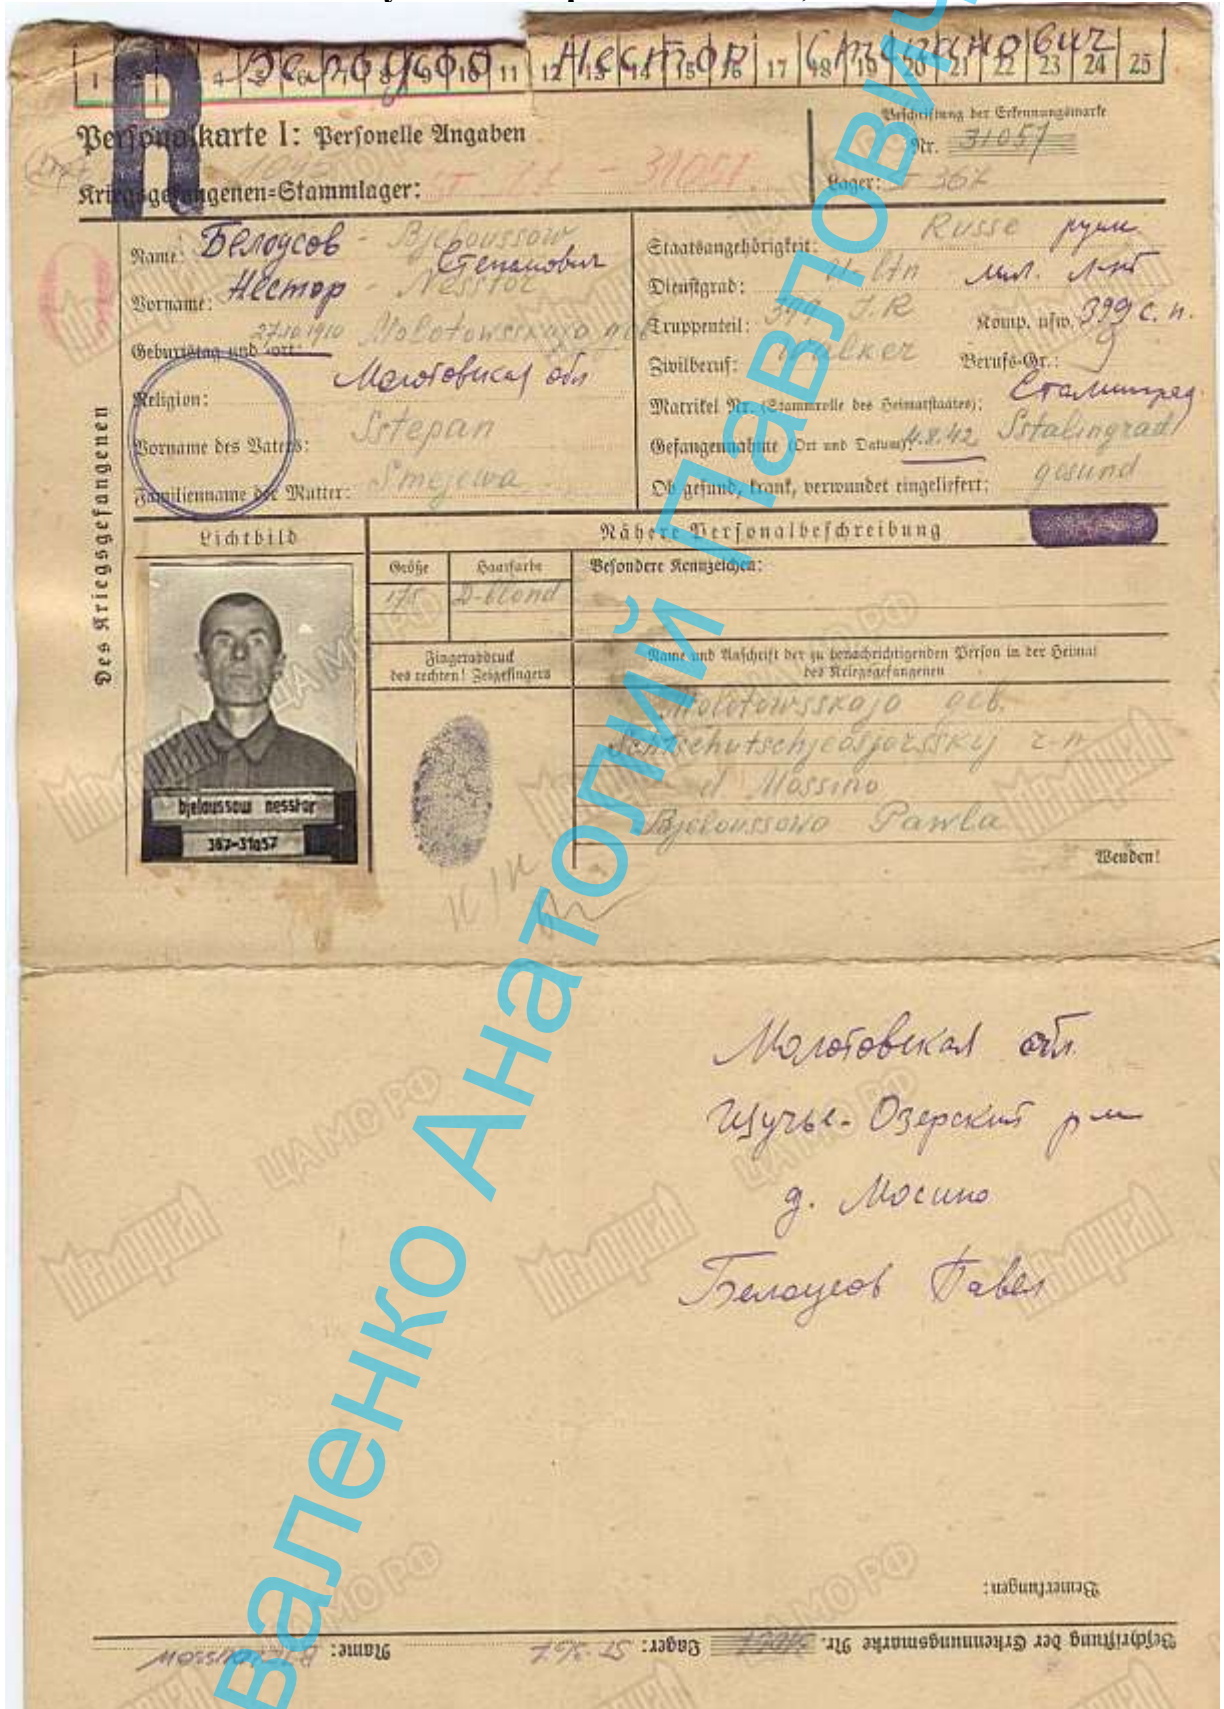 1 4 5 6 7 8 9 10 11 12 13 14 15 16 17 18 19 20 21 22 23 24 25
Белоусов Нестор Степанович
R
Personalkarte I: Personelle Angaben
Kriegsgefangenen=Stammlager: 31051
Beschriftung der Erkennungsmarke
Nr. 31057
Lager: 367
Des Kriegsgefangenen
Name: Белоусов - Bjeloussow
Степанович
Vorname: Нестор - Nesstor
Geburtstag und -ort: 27.10.1910 Molotowsskaja geb
Молотовская обл
Religion:
Vorname des Vaters: Sstepan
Familienname der Mutter: Smejewa
Staatsangehörigkeit: Russe русск
Dienstgrad: U-ltn мл. л-нт
Truppenteil: 399 I.R Komp. usw. 399 с. п.
Zivilberuf: Walker Berufs-Gr.: 9
Сталинград
Matrikel Nr. (Stammrolle des Heimatstaates):
Gefangennahme (Ort und Datum): 4.8.42 Sstalingrad
Ob gesund, krank, verwundet eingeliefert: gesund
Lichtbild
Nähere Personalbeschreibung
Größe Haarfarbe Besondere Kennzeichen:
175 D-blond
Fingerabdruck
des rechten! Zeigefingers
Name und Anschrift der zu benachrichtigenden Person in der Heimat
des Kriegsgefangenen
Molotowsskaja geb.
Schtschutschjeosjorsskij r-n
d Mossino
Bjeloussowo Pawla
bjeloussow nesstor
367-31057
Wenden!
Молотовская обл.
Щучье-Озерский р-н
д. Мосино
Белоусов Павел
Bemerkungen:
Beschriftung der Erkennungsmarke Nr. 31057 Lager: ST 367 Name: BJELOUSSOW
Мемориал
ЦАМО РФ
валенко Анатолий Павлович